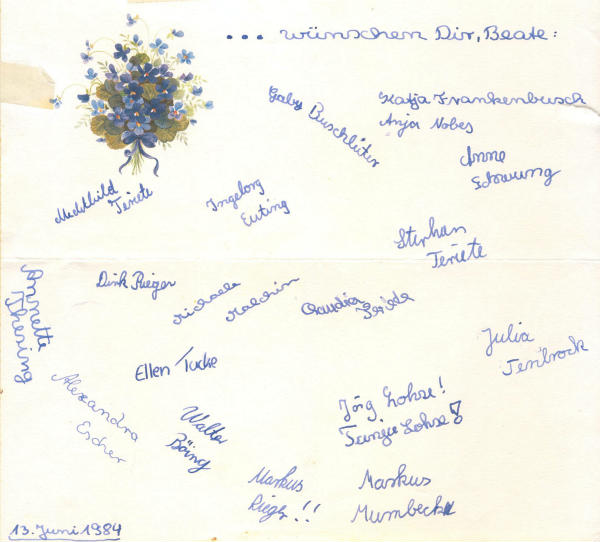 ... wünschen Dir, Beate:
Gaby Buschlüter
Katja Frankenbusch
Anja Nobes
Anne
Schwung
Mechthild
Teriete
Ingeborg
Euting
Stephan
Teriete
Annette
Thering
Dirk Rieger
Michaela
Malchin
Claudia
Julia
Ten'brock
Ellen Tucke
Alexandra
Escher
Walter
Böing
Jörg Lohse!
Tanja Lohse!
Markus
Rieger!!
Markus
Mumbeck
13. Juni 1984